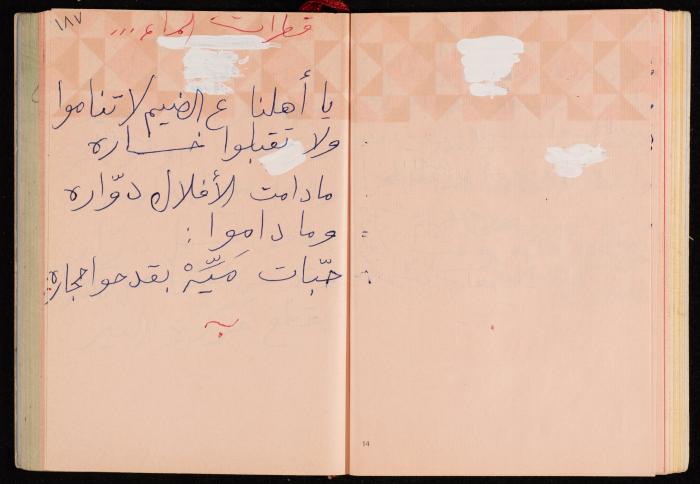 ١٨٧
قطرات الماء...
يا أهلنا ع الضيم لا تناموا
ولا تقبلوا خساره
مادامت الأفلاك دوّاره
وما داموا :
حبّات مَيِّهْ بقدحوا حجاره
14